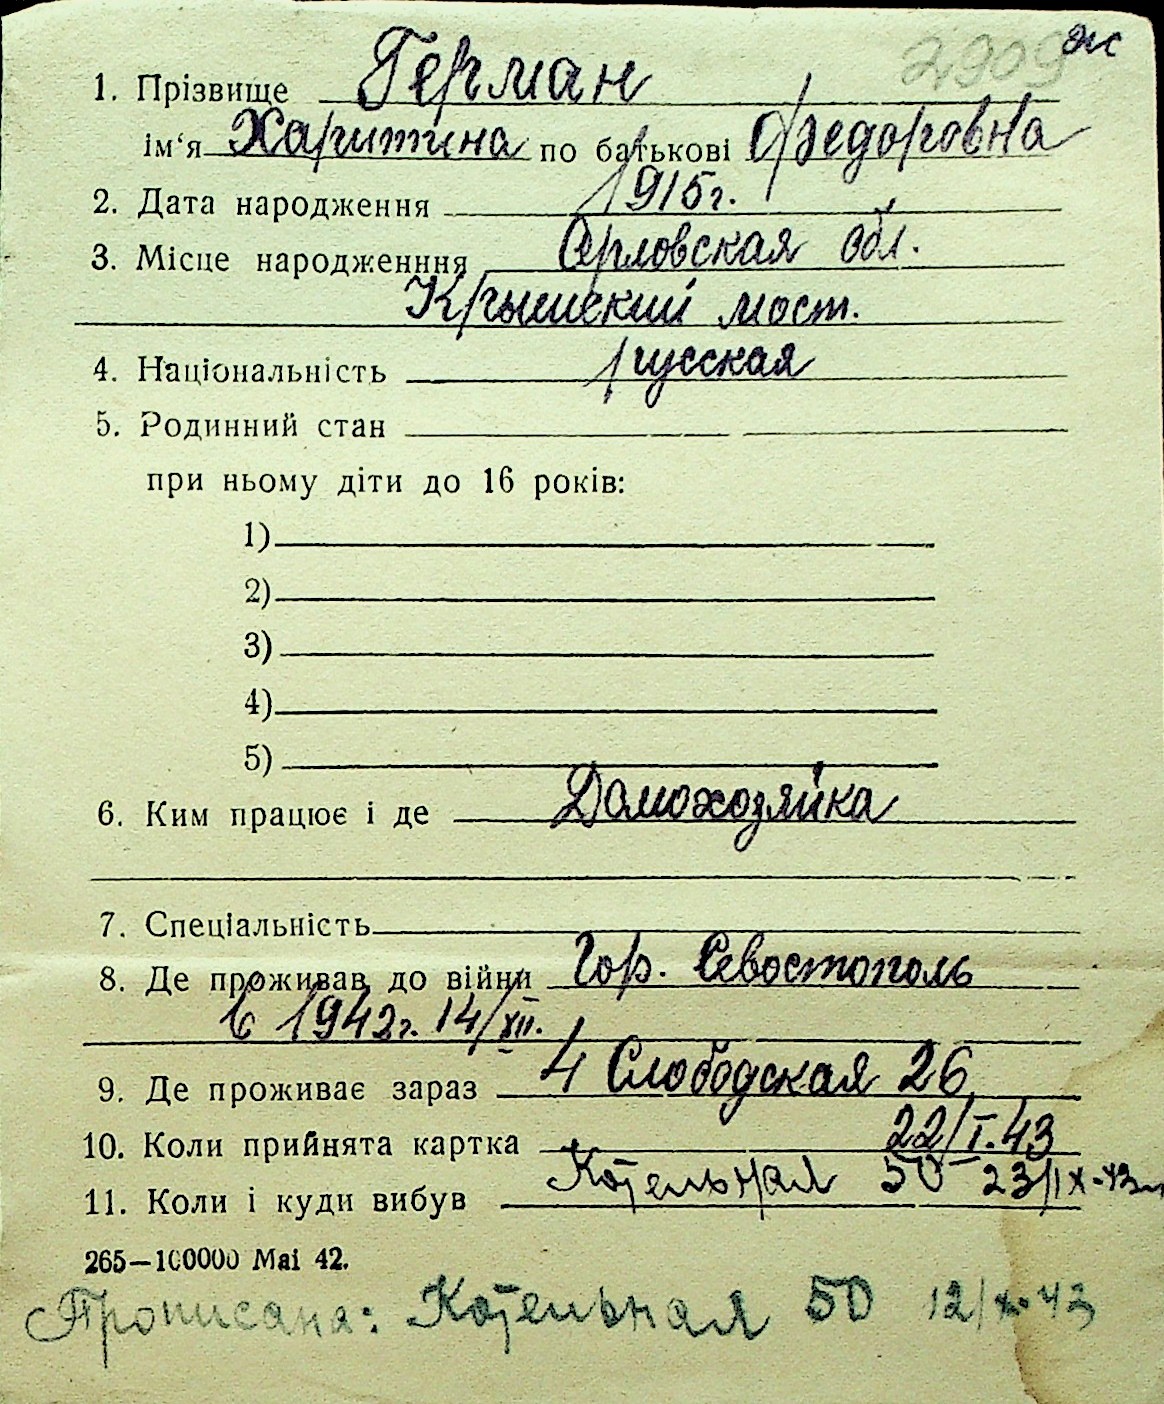 2909 ж
1. Прізвище Герман
ім'я Харитина по батькові Федоровна
2. Дата народження 1915 г.
3. Місце народженння Орловская обл.
Крымский мост.
4. Національність русская
5. Родинний стан
при ньому діти до 16 років:
1)
2)
3)
4)
5)
6. Ким працює і де Домохозяйка
7. Спеціальність
8. Де проживав до війни Гор. Севостополь
в 1942г. 14/XII.
9. Де проживає зараз 4 Слободская 26
10. Коли прийнята картка 22/I.43
11. Коли і куди вибув Котельная 50 23/IX-43
265—100000 Mai 42.
Прописана: Котельная 50 12/X-43